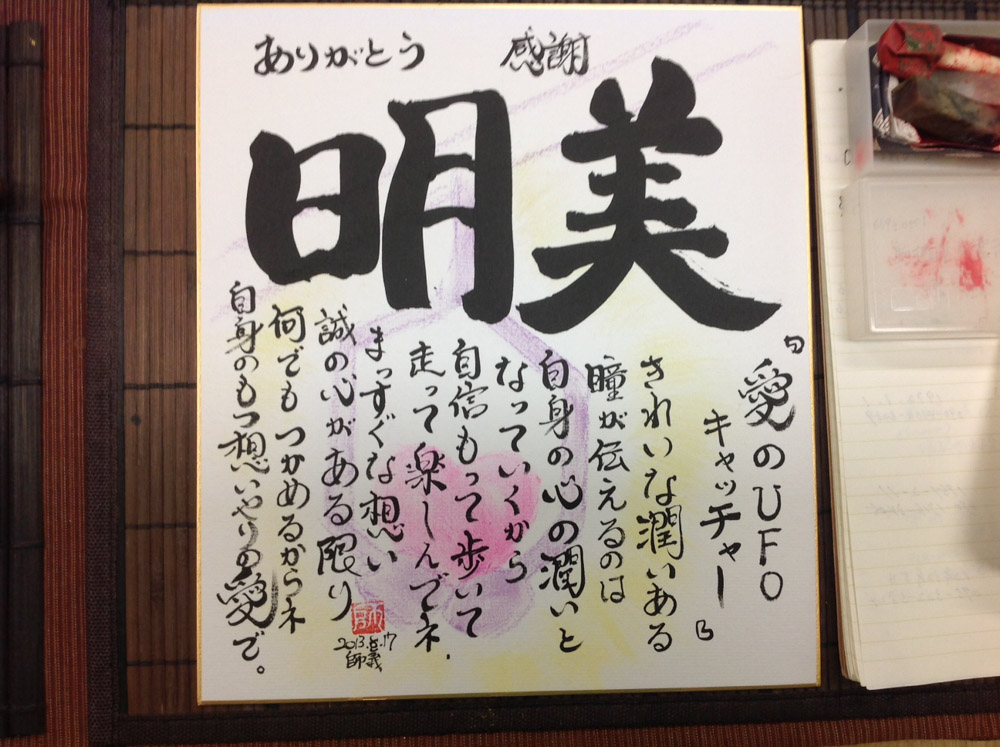 ありがとう 感謝
明美
『愛のUFO
キャッチャー』
きれいな潤いある
瞳が伝えるのは
自身の心の潤いと
なっていくから
自信もって歩いて
走って楽しんでネ.
まっすぐな想い
誠の心がある限り
何でもつかめるからネ
自身のもつ想いやりの愛で。
2013.8.17
師義